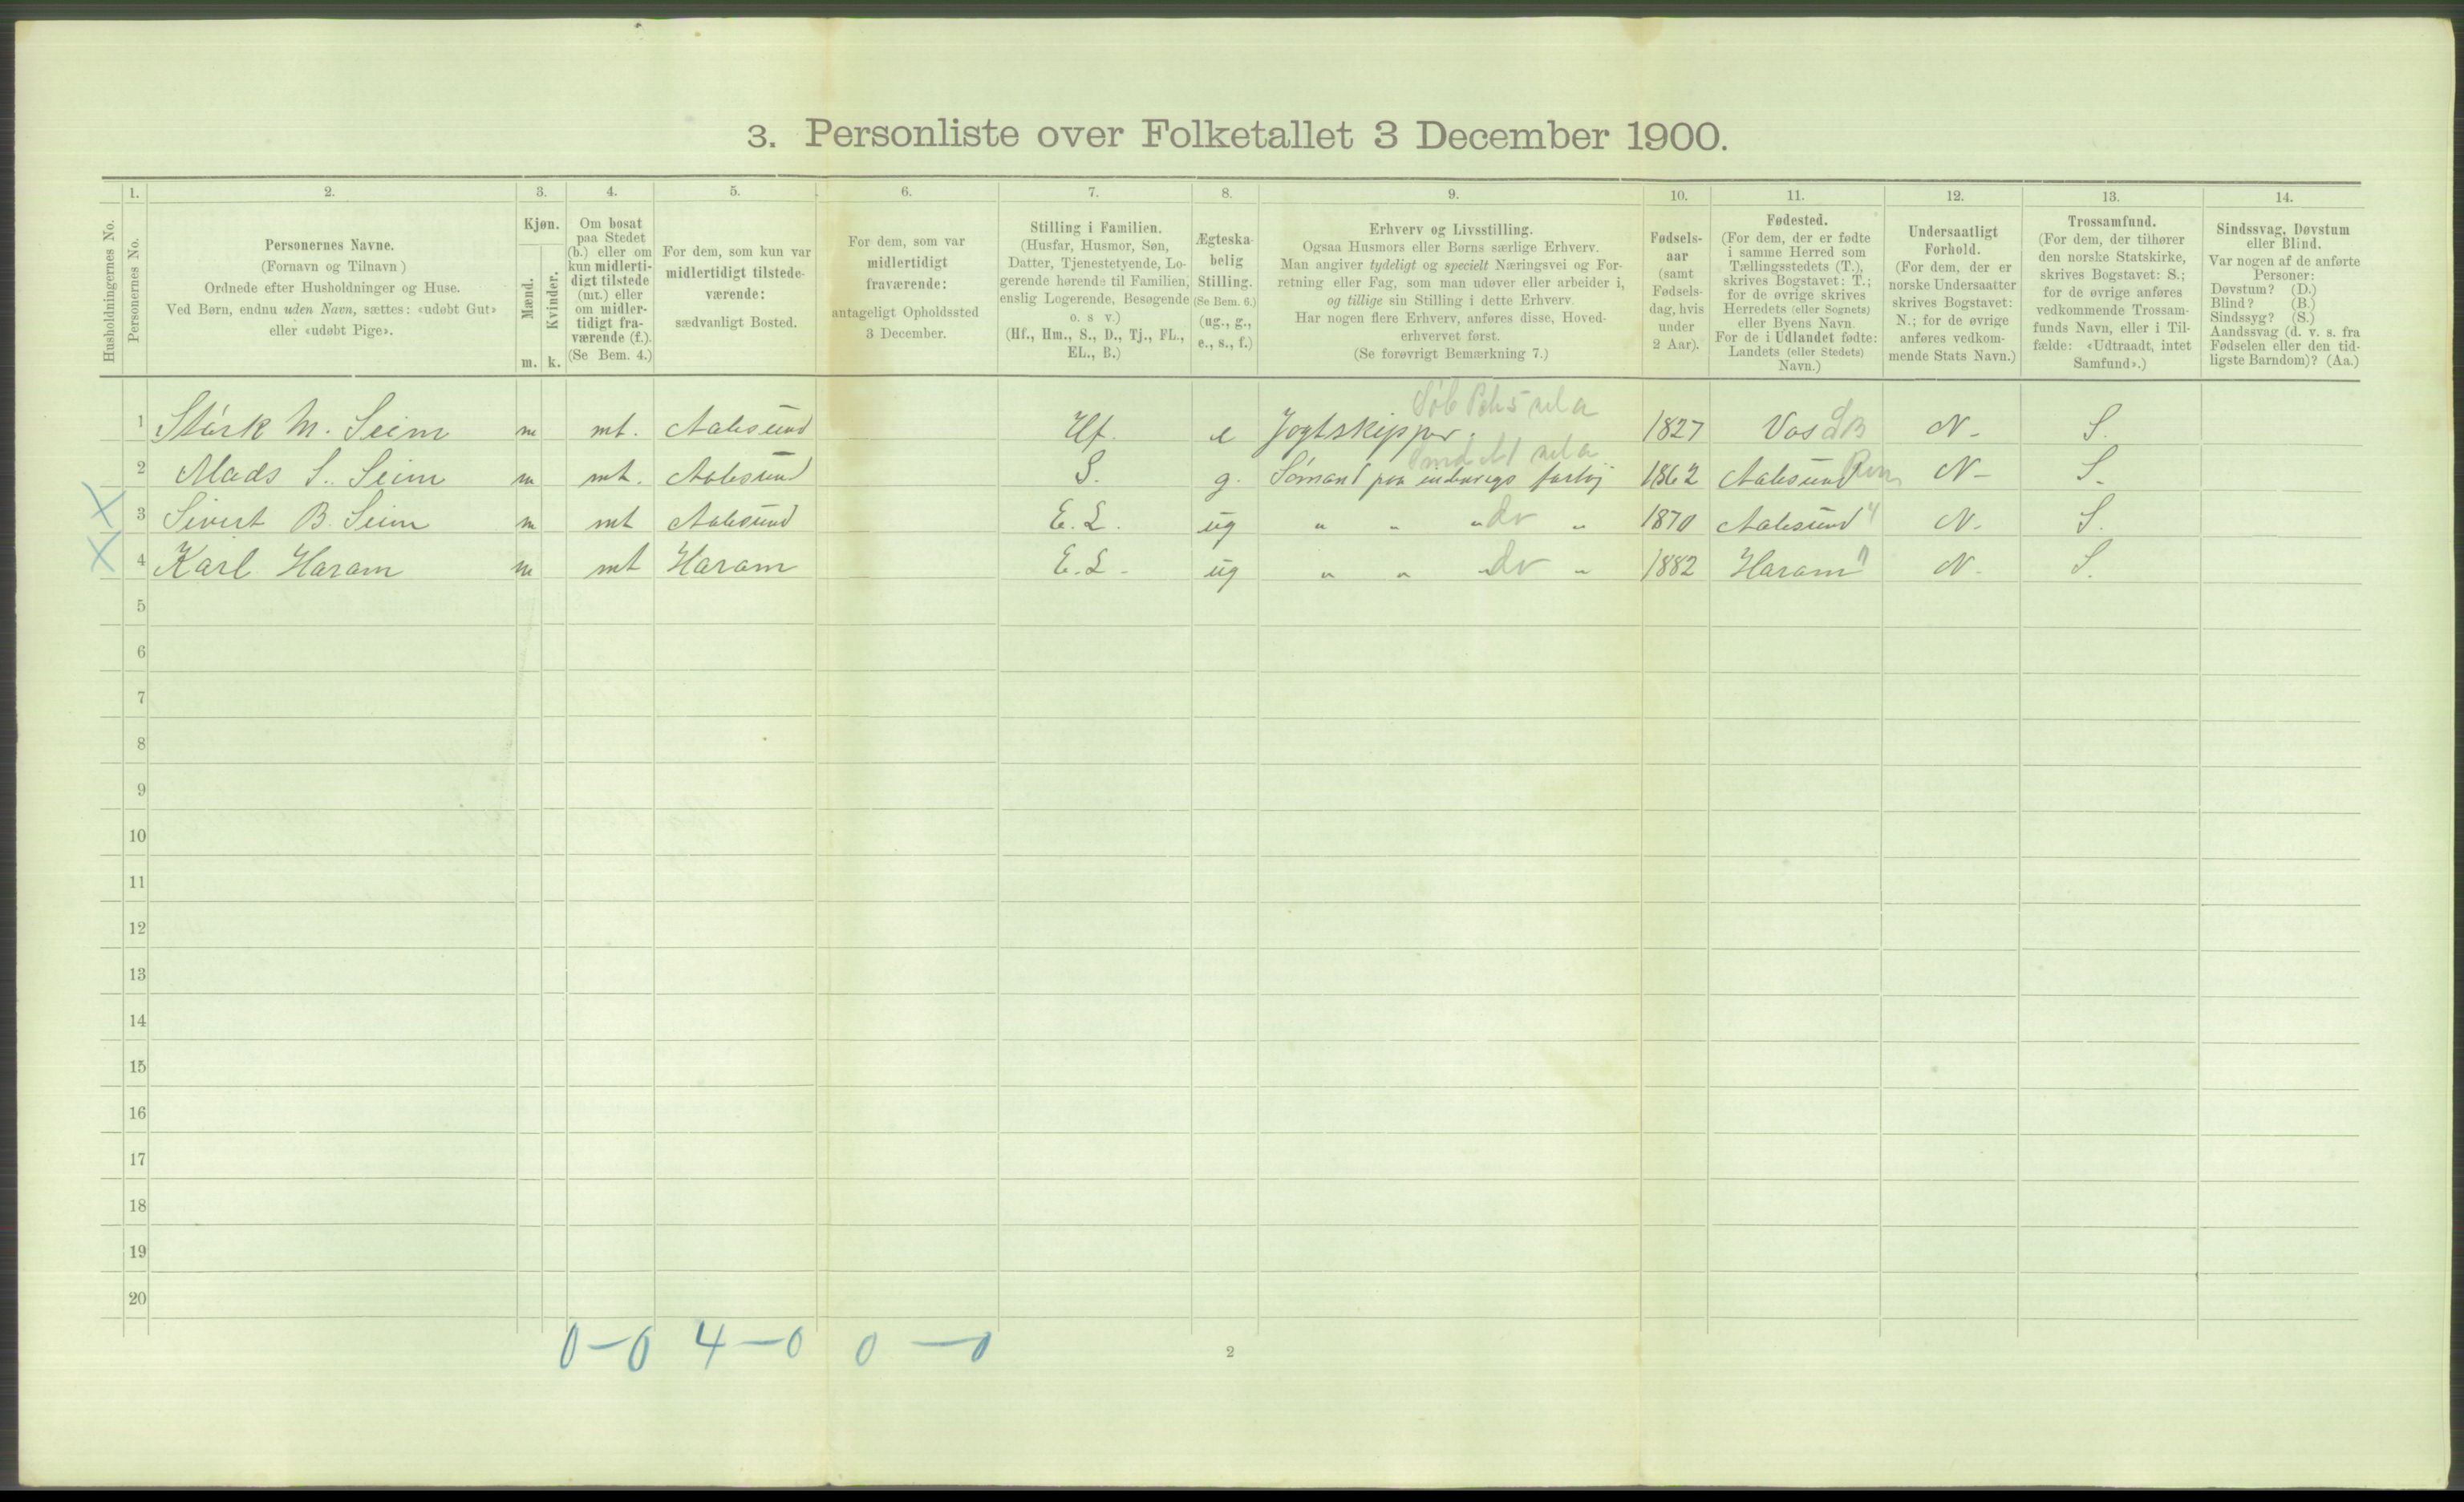 3. Personliste over Folketallet 3 December 1900.
1. 2. 3. 4. 5. 6. 7. 8. 9. 10. 11. 12. 13. 14.
Husholdningernes No.
Personernes No.
Personernes Navne.
(Fornavn og Tilnavn)
Ordnede efter Husholdninger og Huse.
Ved Børn, endnu uden Navn, sættes: «udøbt Gut»
eller «udøbt Pige».
Kjøn.
Mænd.
Kvinder.
m. k.
Om bosat
paa Stedet
(b.) eller om
kun midlerti-
digt tilstede
(mt.) eller
om midler-
tidigt fra-
værende (f.).
(Se Bem. 4.)
For dem, som kun var
midlertidigt tilstede-
værende:
sædvanligt Bosted.
For dem, som var
midlertidigt
fraværende:
antageligt Opholdssted
3 December.
Stilling i Familien.
(Husfar, Husmor, Søn,
Datter, Tjenestetyende, Lo-
gerende hørende til Familien,
enslig Logerende, Besøgende
o. s v.)
(Hf., Hm., S., D., Tj., FL.,
EL., B.)
Ægteska-
belig
Stilling.
(Se Bem. 6.)
(ug., g.,
e., s., f.)
Erhverv og Livsstilling.
Ogsaa Husmors eller Børns særlige Erhverv.
Man angiver tydeligt og specielt Næringsvei og For-
retning eller Fag, som man udøver eller arbeider i,
og tillige sin Stilling i dette Erhverv.
Har nogen flere Erhverv, anføres disse, Hoved-
erhvervet først.
(Se forøvrigt Bemærkning 7.)
Fødsels-
aar
(samt
Fødsels-
dag, hvis
under
2 Aar).
Fødested.
(For dem, der er fødte
i samme Herred som
Tællingsstedets (T.),
skrives Bogstavet: T.;
for de øvrige skrives
Herredets (eller Sognets)
eller Byens Navn.
For de i Udlandet fødte:
Landets (eller Stedets)
Navn.)
Undersaatligt
Forhold.
(For dem, der er
norske Undersaatter
skrives Bogstavet:
N.; for de øvrige
anføres vedkom-
mende Stats Navn.)
Trossamfund.
(For dem, der tilhører
den norske Statskirke,
skrives Bogstavet: S.;
for de øvrige anføres
vedkommende Trossam-
funds Navn, eller i Til-
fælde: «Udtraadt, intet
Samfund».)
Sindssvag, Døvstum
eller Blind.
Var nogen af de anførte
Personer:
Døvstum? (D.)
Blind? (B.)
Sindssyg? (S.)
Aandssvag (d. v. s. fra
Fødselen eller den tid-
ligste Barndom)? (Aa.)
1 Stârk M. Seim m mt. Aalesund Hf. e Jogtskipper. 1827 Vos SB N. S.
2 Mads S. Seim m mt. Aalesund S. g. Sömand paa indenrigs fartöj 1862 Aalesund Rom N S.
X 3 Sivert B. Seim m mt Aalesund E. L. ug " " " do " 1870 Aalesund " N. S.
X 4 Karl Haram m mt Haram E. L. ug " " " do " 1882 Haram " N. S.
5
6
7
8
9
10
11
12
13
14
15
16
17
18
19
20
0-0 4-0 0-0
2